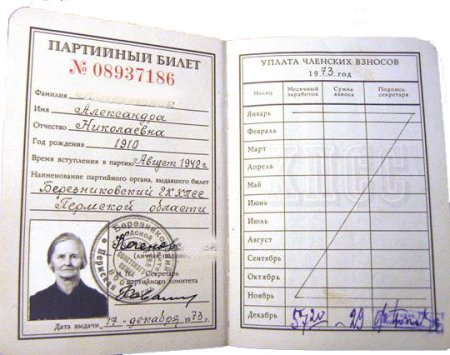 ПАРТИЙНЫЙ БИЛЕТ
№ 08937186
Фамилия
Имя Александра
Отчество Николаевна
Год рождения 1910
Время вступления в партию Август 1942 г.
Наименование партийного органа, выдавшего билет
Березниковский ГК КПСС
Пермской области
(личная подпись)
Секретарь
партийного комитета
Дата выдачи 17 декабря 1973 г.
УПЛАТА ЧЛЕНСКИХ ВЗНОСОВ
1973 год
Месяц Месячный заработок Сумма взноса Подпись секретаря
Январь
Февраль
Март
Апрель
Май
Июнь
Июль
Август
Сентябрь
Октябрь
Ноябрь
Декабрь 57,20 - 29